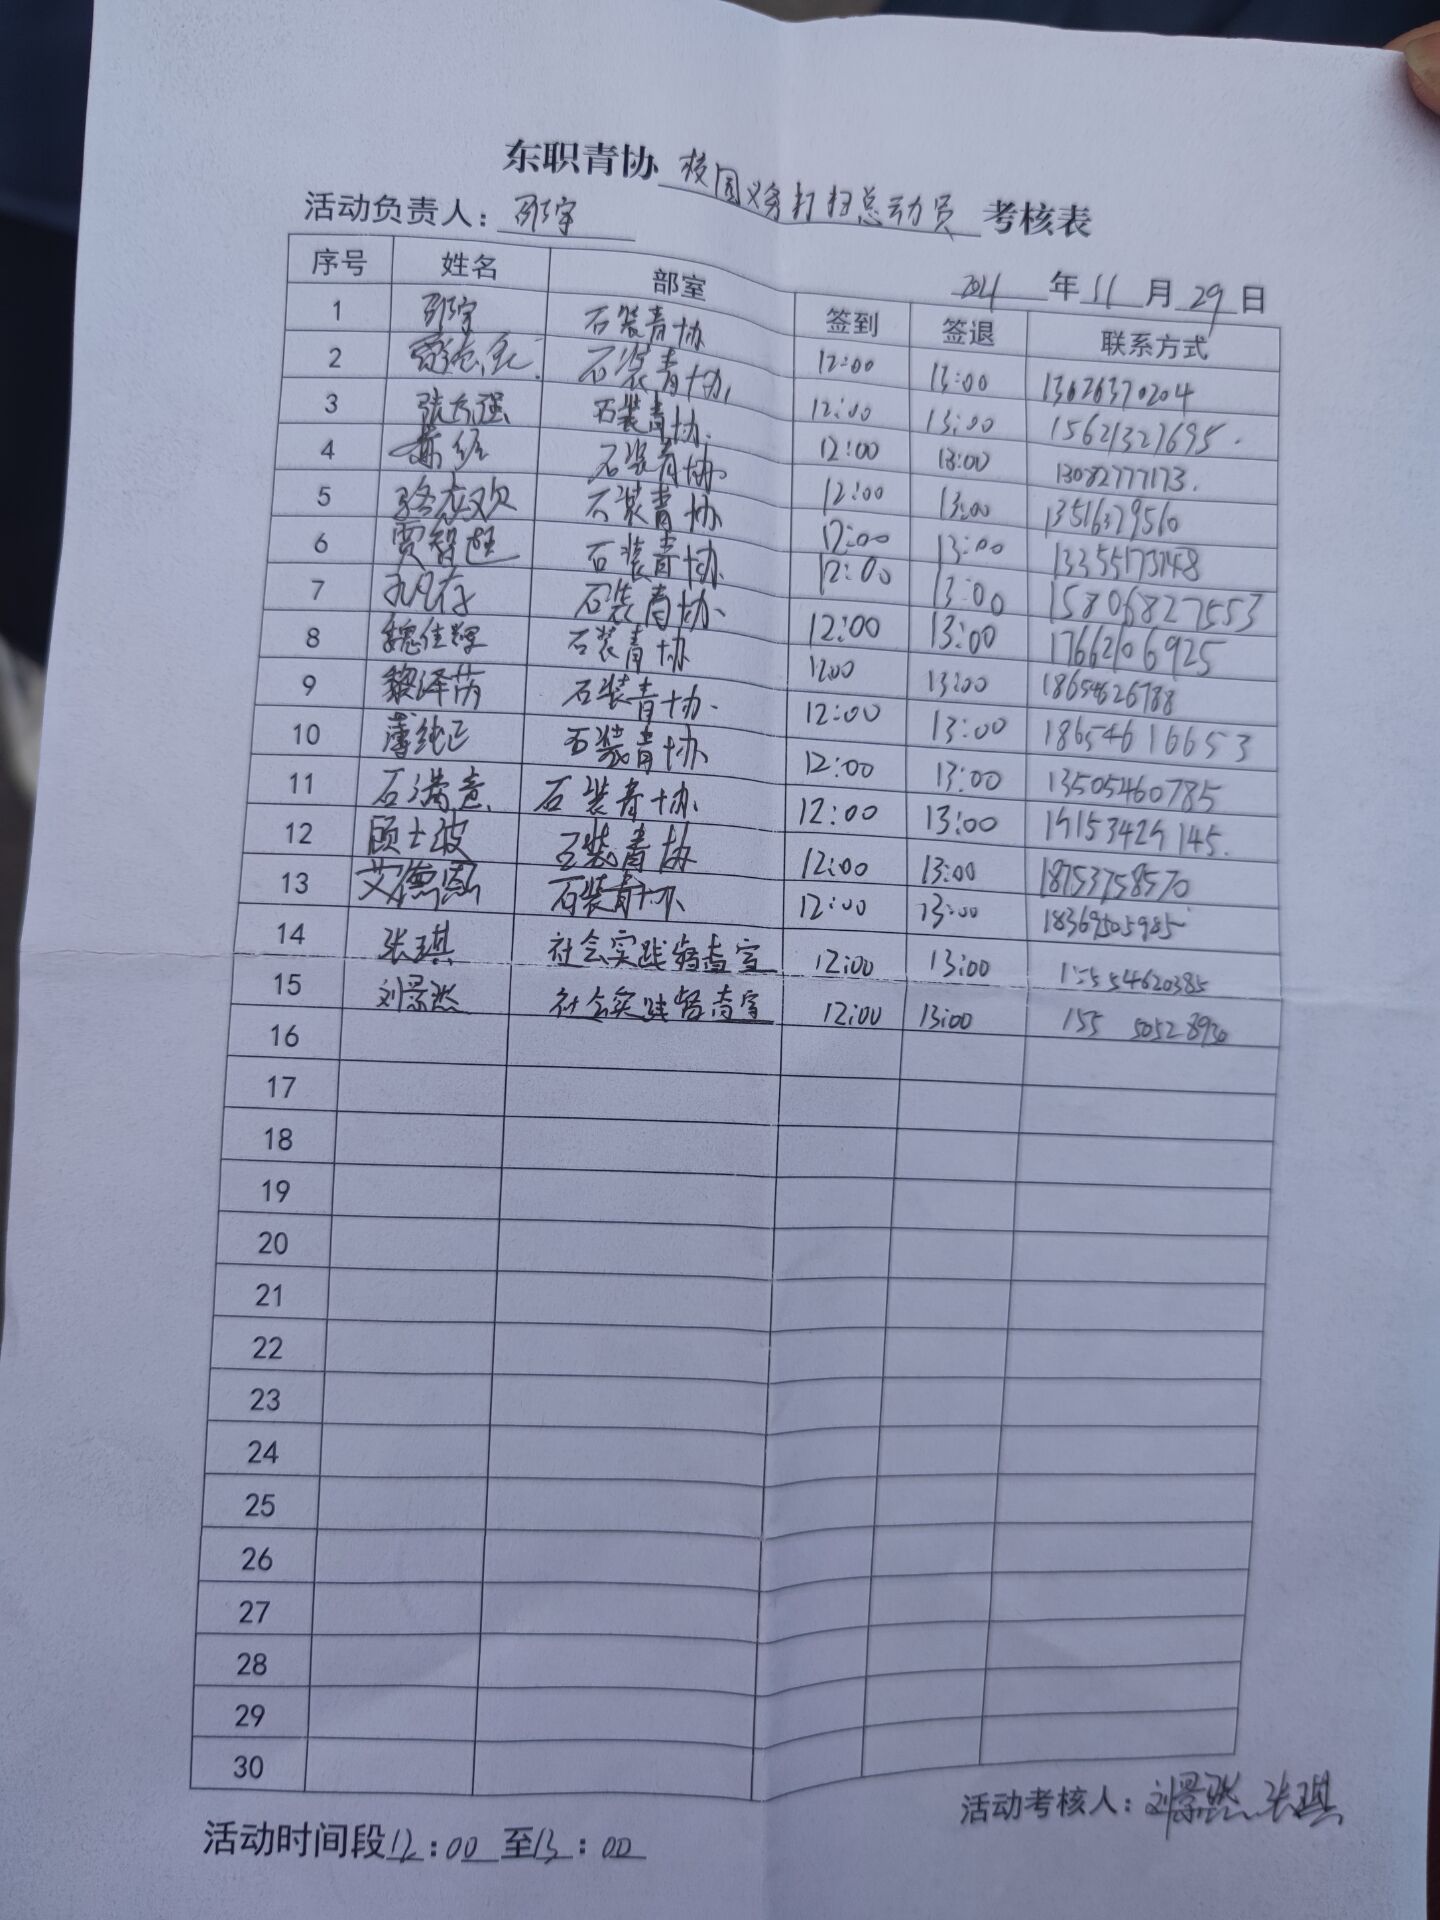 东职青协 校园义务打扫总动员 考核表
活动负责人：邵宇
2021年11月29日
序号 姓名 部室 签到 签退 联系方式
1 邵宇 石装青协 12:00 13:00 13626370204
2 石装青协 12:00 13:00 15621327695
3 石装青协 12:00 13:00 13082777173
4 石装青协 12:00 13:00
5 石装青协 12:00 13:00
6 贾智 石装青协 12:00 13:00 15806827553
7 石装青协 12:00 13:00 17662106925
8 魏佳辉 石装青协 12:00 13:00
9 黎泽芮 石装青协 12:00 13:00 18654616653
10 薄纯正 石装青协 12:00 13:00 13505460785
11 石满意 石装青协 12:00 13:00 19153429145
12 顾士波 石装青协 12:00 13:00 18753758570
13 艾德恩 石装青协 12:00 13:00 18369505985
14 张琪 社会实践督查室 12:00 13:00
15 刘景然 社会实践督查室 12:00 13:00 155 50528930
16
17
18
19
20
21
22
23
24
25
26
27
28
29
30
活动考核人：刘景然 张琪
活动时间段12：00至13：00